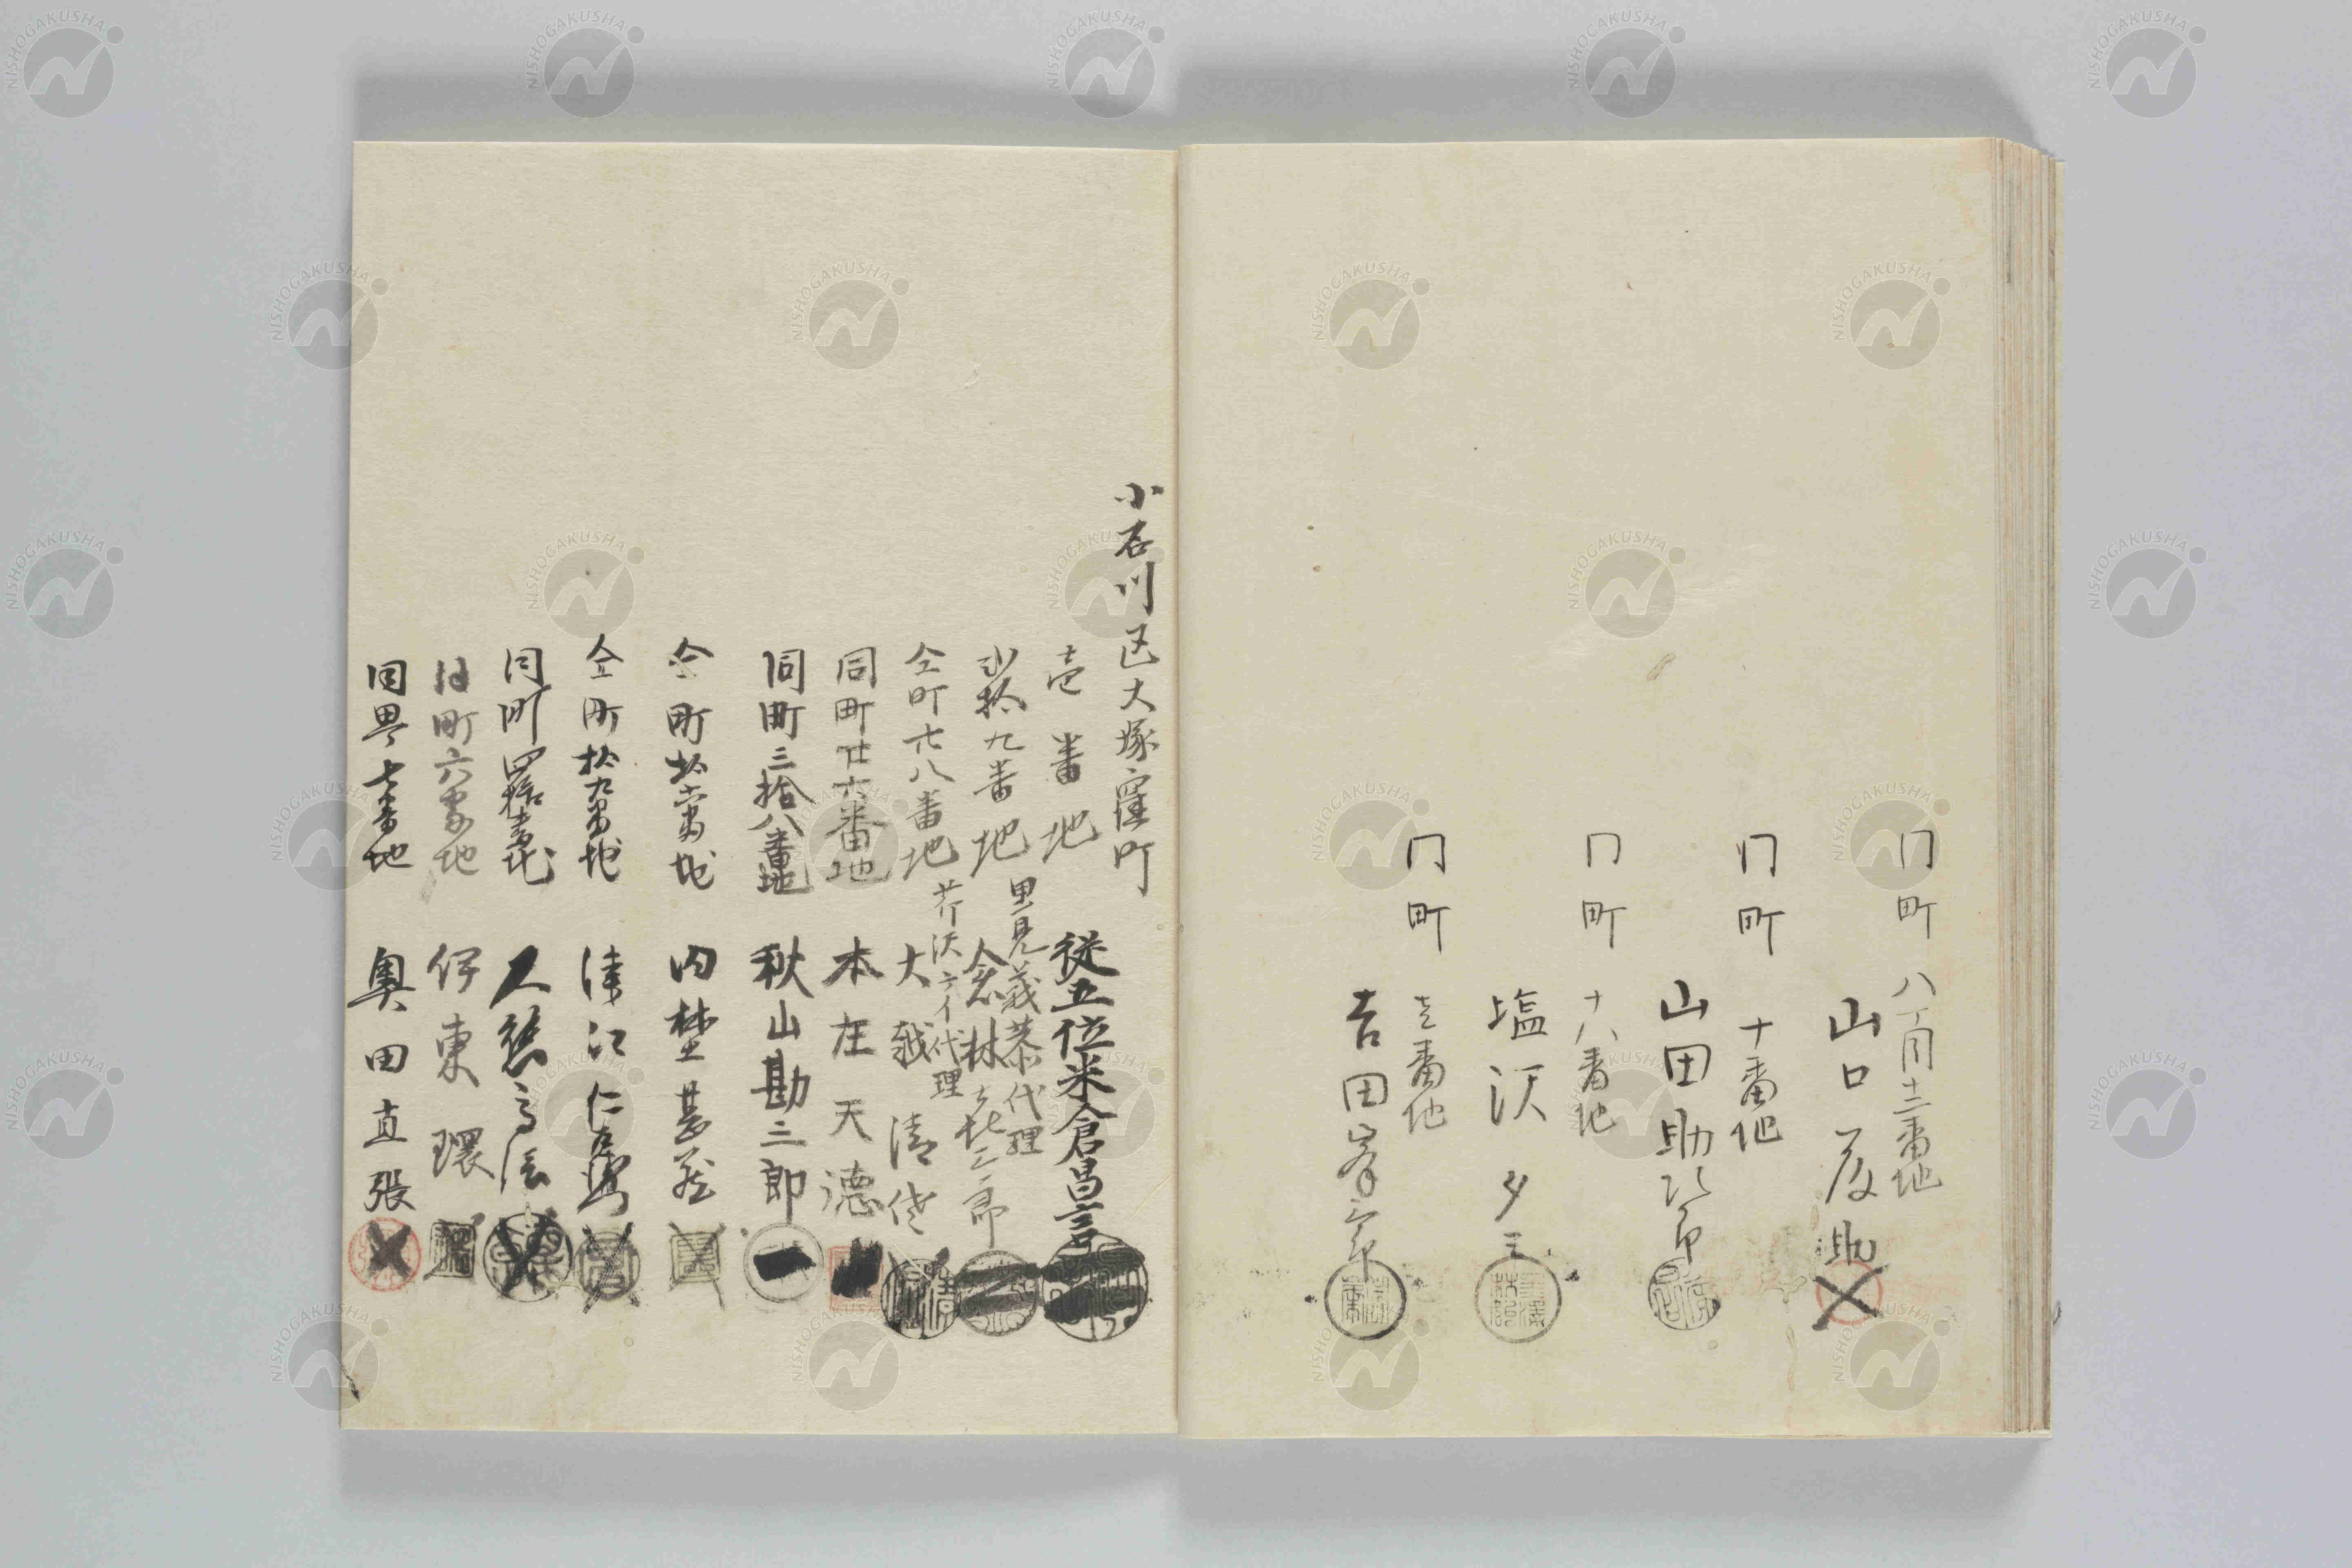 同町 八丁目十二番地
山口 助
同町 十番地
山田助次郎
同町 十八番地
塩沢夕
同町 壱番地
吉田峯
小石川区大塚窪町
壱番地
従五位米倉昌言
里見義恭代理
弐拾九番地
林 三郎
芥沢 代理
仝町廿八番地
大越清
同町廿六番地
本庄天徳
同町三拾八番地
秋山勘三郎
仝町拾壱番地
内埜甚
仝町拾九番地
津江仁
同町四拾壱番地
同町六番地
伊東環
同町七番地
奥田直張
NISHOGAKUSHA